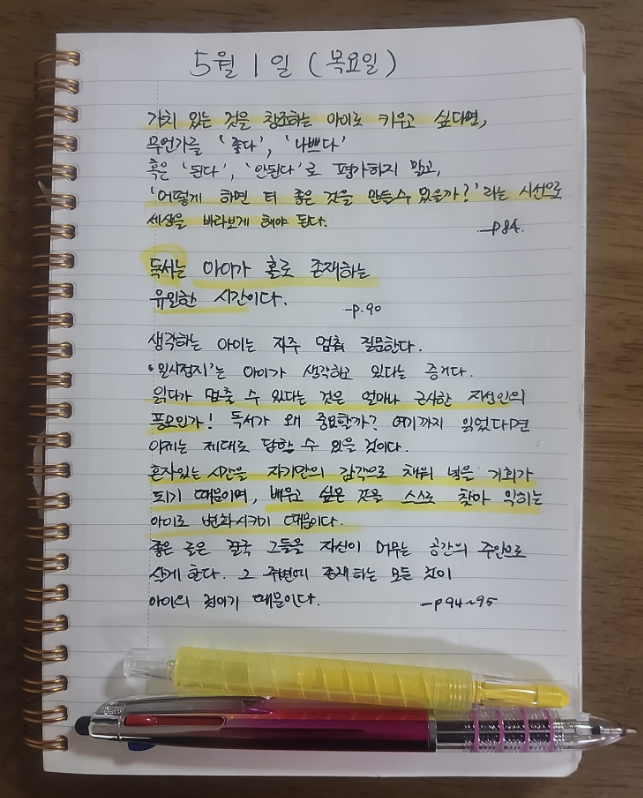 5월 1일 (목요일)
가치 있는 것을 창조하는 아이로 키우고 싶다면,
무언가를 '좋다', '나쁘다'
혹은 '된다', '안된다'로 평가하지 말고,
'어떻게 하면 더 좋은 것을 만들수 있을까?' 라는 시선으로
세상을 바라보게 해야 된다.
-p84.
독서는 아이가 홀로 존재하는
유일한 시간이다.
-p.90
생각하는 아이는 자주 멈춰 질문한다.
'일시정지'는 아이가 생각하고 있다는 증거다.
읽다가 멈출 수 있다는 것은 얼마나 근사한 지성인의
풍모인가! 독서가 왜 중요할까? 여기까지 읽었다면
이제는 제대로 답할 수 있을 것이다.
혼자있는 시간을 자기만의 감각으로 채워 넣을 기회가
되기 때문이며, 배우고 싶은 것을 스스로 찾아 익히는
아이로 변화시키기 때문이다.
좋은 글은 결국 그들을 자신이 머무는 공간의 주인으로
살게 한다. 그 주변에 존재하는 모든 것이
아이의 것이기 때문이다.
-p94~95